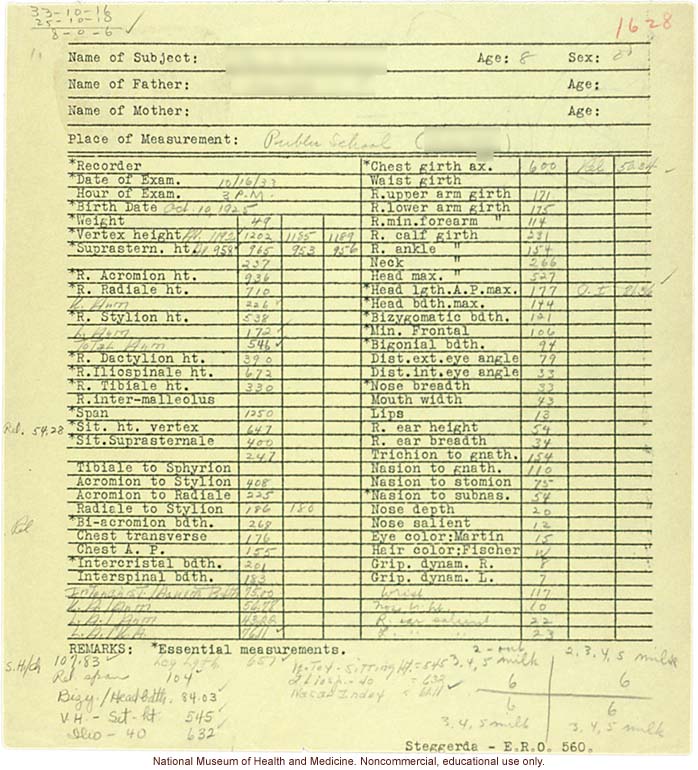 33-10-16
25-10-10
8-0-6 ✓
1628
Name of Subject: Age: 8 Sex: ♂
Name of Father: Age:
Name of Mother: Age:
Place of Measurement: Public School (
*Recorder
*Date of Exam. 10/16/33
Hour of Exam. 3 P.M.
*Birth Date Oct. 10, 1925
*Weight 49
*Vertex height 1202 1185 1189
*Suprastern. ht. 965 953 956
237
*R. Acromion ht. 936
*R. Radiale ht. 710
226 ✓
*R. Stylion ht. 538
L. Arm 172 ✓
Total Arm 546 ✓
*R. Dactylion ht. 390
*R. Iliospinale ht. 672
*R. Tibiale ht. 330
R.inter-malleolus
*Span 1250
Rel. 54.28 *Sit. ht. vertex 647
*Sit.Suprasternale 400
247
Tibiale to Sphyrion
Acromion to Stylion 408
Acromion to Radiale 225
Radiale to Stylion 186 180
Rel *Bi-acromion bdth. 268
Chest transverse 176
Chest A. P. 155
*Intercristal bdth. 201
Interspinal bdth. 183
7500
5678
7611 ✓
*Chest girth ax. 600 Rel 50.34
Waist girth
R.upper arm girth 171
R.lower arm girth 175
R.min.forearm " 114
R. calf girth 231
R. ankle " 154
Neck 266
Head max. " 527
*Head lgth.A.P.max. 177 C.I 8136
*Head bdth.max. 144
*Bizygomatic bdth. 121
*Min. Frontal 106
*Bigonial bdth. 94
Dist.ext.eye angle 79
Dist.int.eye angle 33
*Nose breadth 33
Mouth width 43
Lips 13
R. ear height 54
R. ear breadth 34
Trichion to gnath. 154
Nasion to gnath. 110
Nasion to stomion 75
*Nasion to subnas. 54
Nose depth 20
Nose salient 12
Eye color:Martin 15
Hair color:Fischer W
Grip. dynam. R. 8
Grip. dynam. L. 7
Wrist 117
10
R. ear salient 22
23
REMARKS: *Essential measurements.
S.H/ch 107.83 ✓ Leg Lgth 657 ✓
Rel span 104 ✓
Bizy./Head bdth. 84.03 ✓
V.H. - Sit-ht 545 ✓
Ilio - 40 632 ✓
Sitting Ht. = 545
Iliosp - 40 = 632
Nasal Index = 6111 ✓
3, 4, 5 milk 2, 3, 4, 5 milk
6 6
6 6
3, 4, 5 milk 3, 4, 5 milk
Steggerda - E.R.O. 560.
National Museum of Health and Medicine. Noncommercial, educational use only.